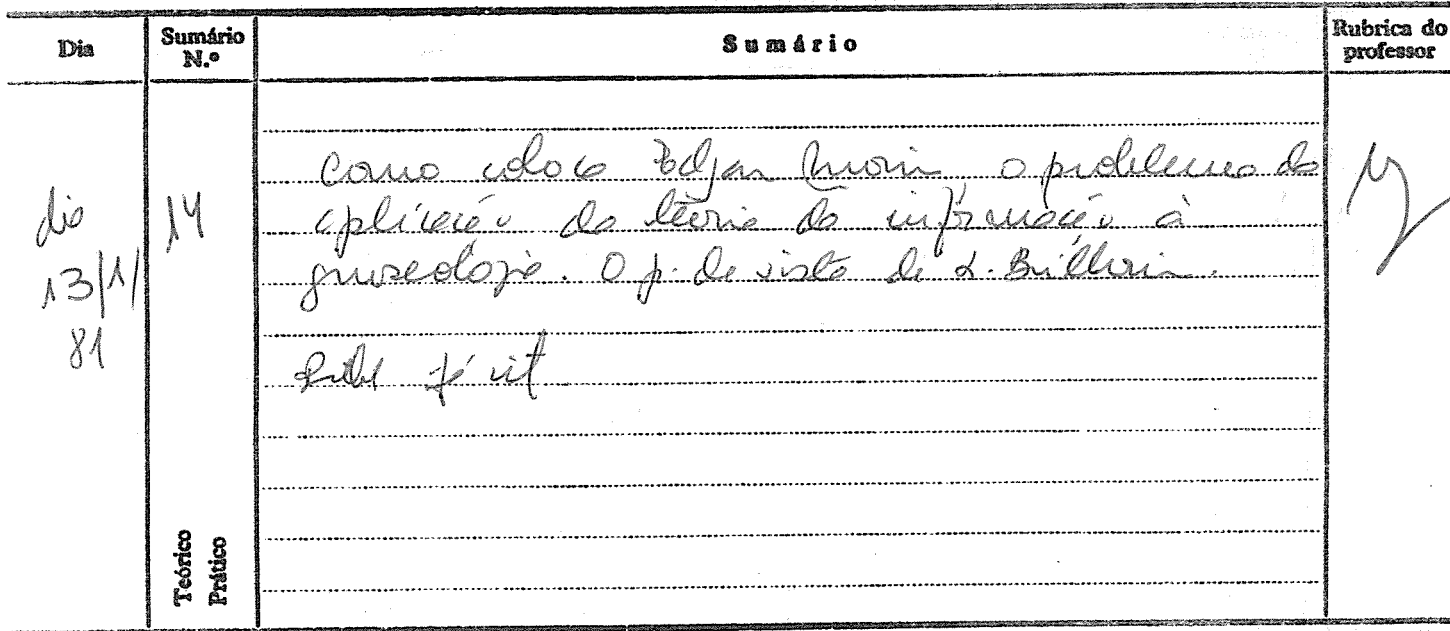 Dia
Sumário N.º
Sumário
Rubrica do professor
dia 13/1/81
14
Como coloca Edgar Morin o problema da
aplicação da teoria da informação à
gnoseologia. O p. de vista de L. Brillouin.
Teórico
Prático